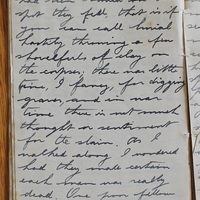 spot they fell, that is if
you can call burial
hastily throwing a few
shovelfuls of clay on
the corpses; there was little
time, I fancy, for digging
graves, and in war
time there is not much
thought or sentiment
for the slain. As I
walked along I wondered
had they made certain
each man was really
dead. One poor fellow